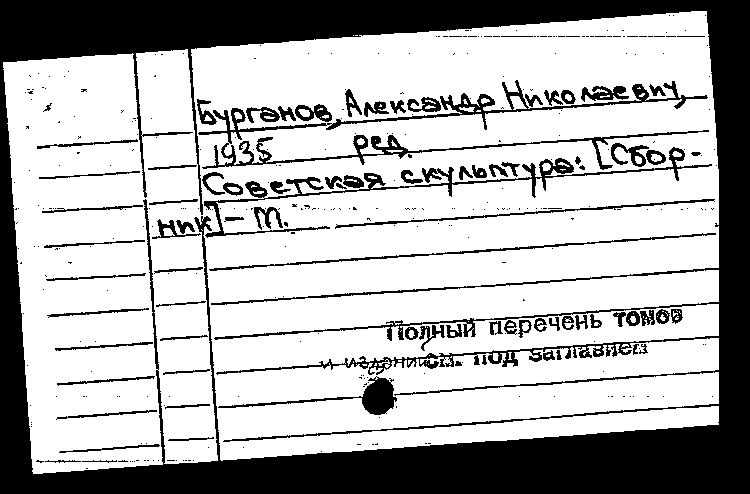 Бурганов, Александр Николаевич,
1935 ред.
Советская скульптура: [Сбор-
ник] - М.
Полный перечень томов
и издений см. под заглавием